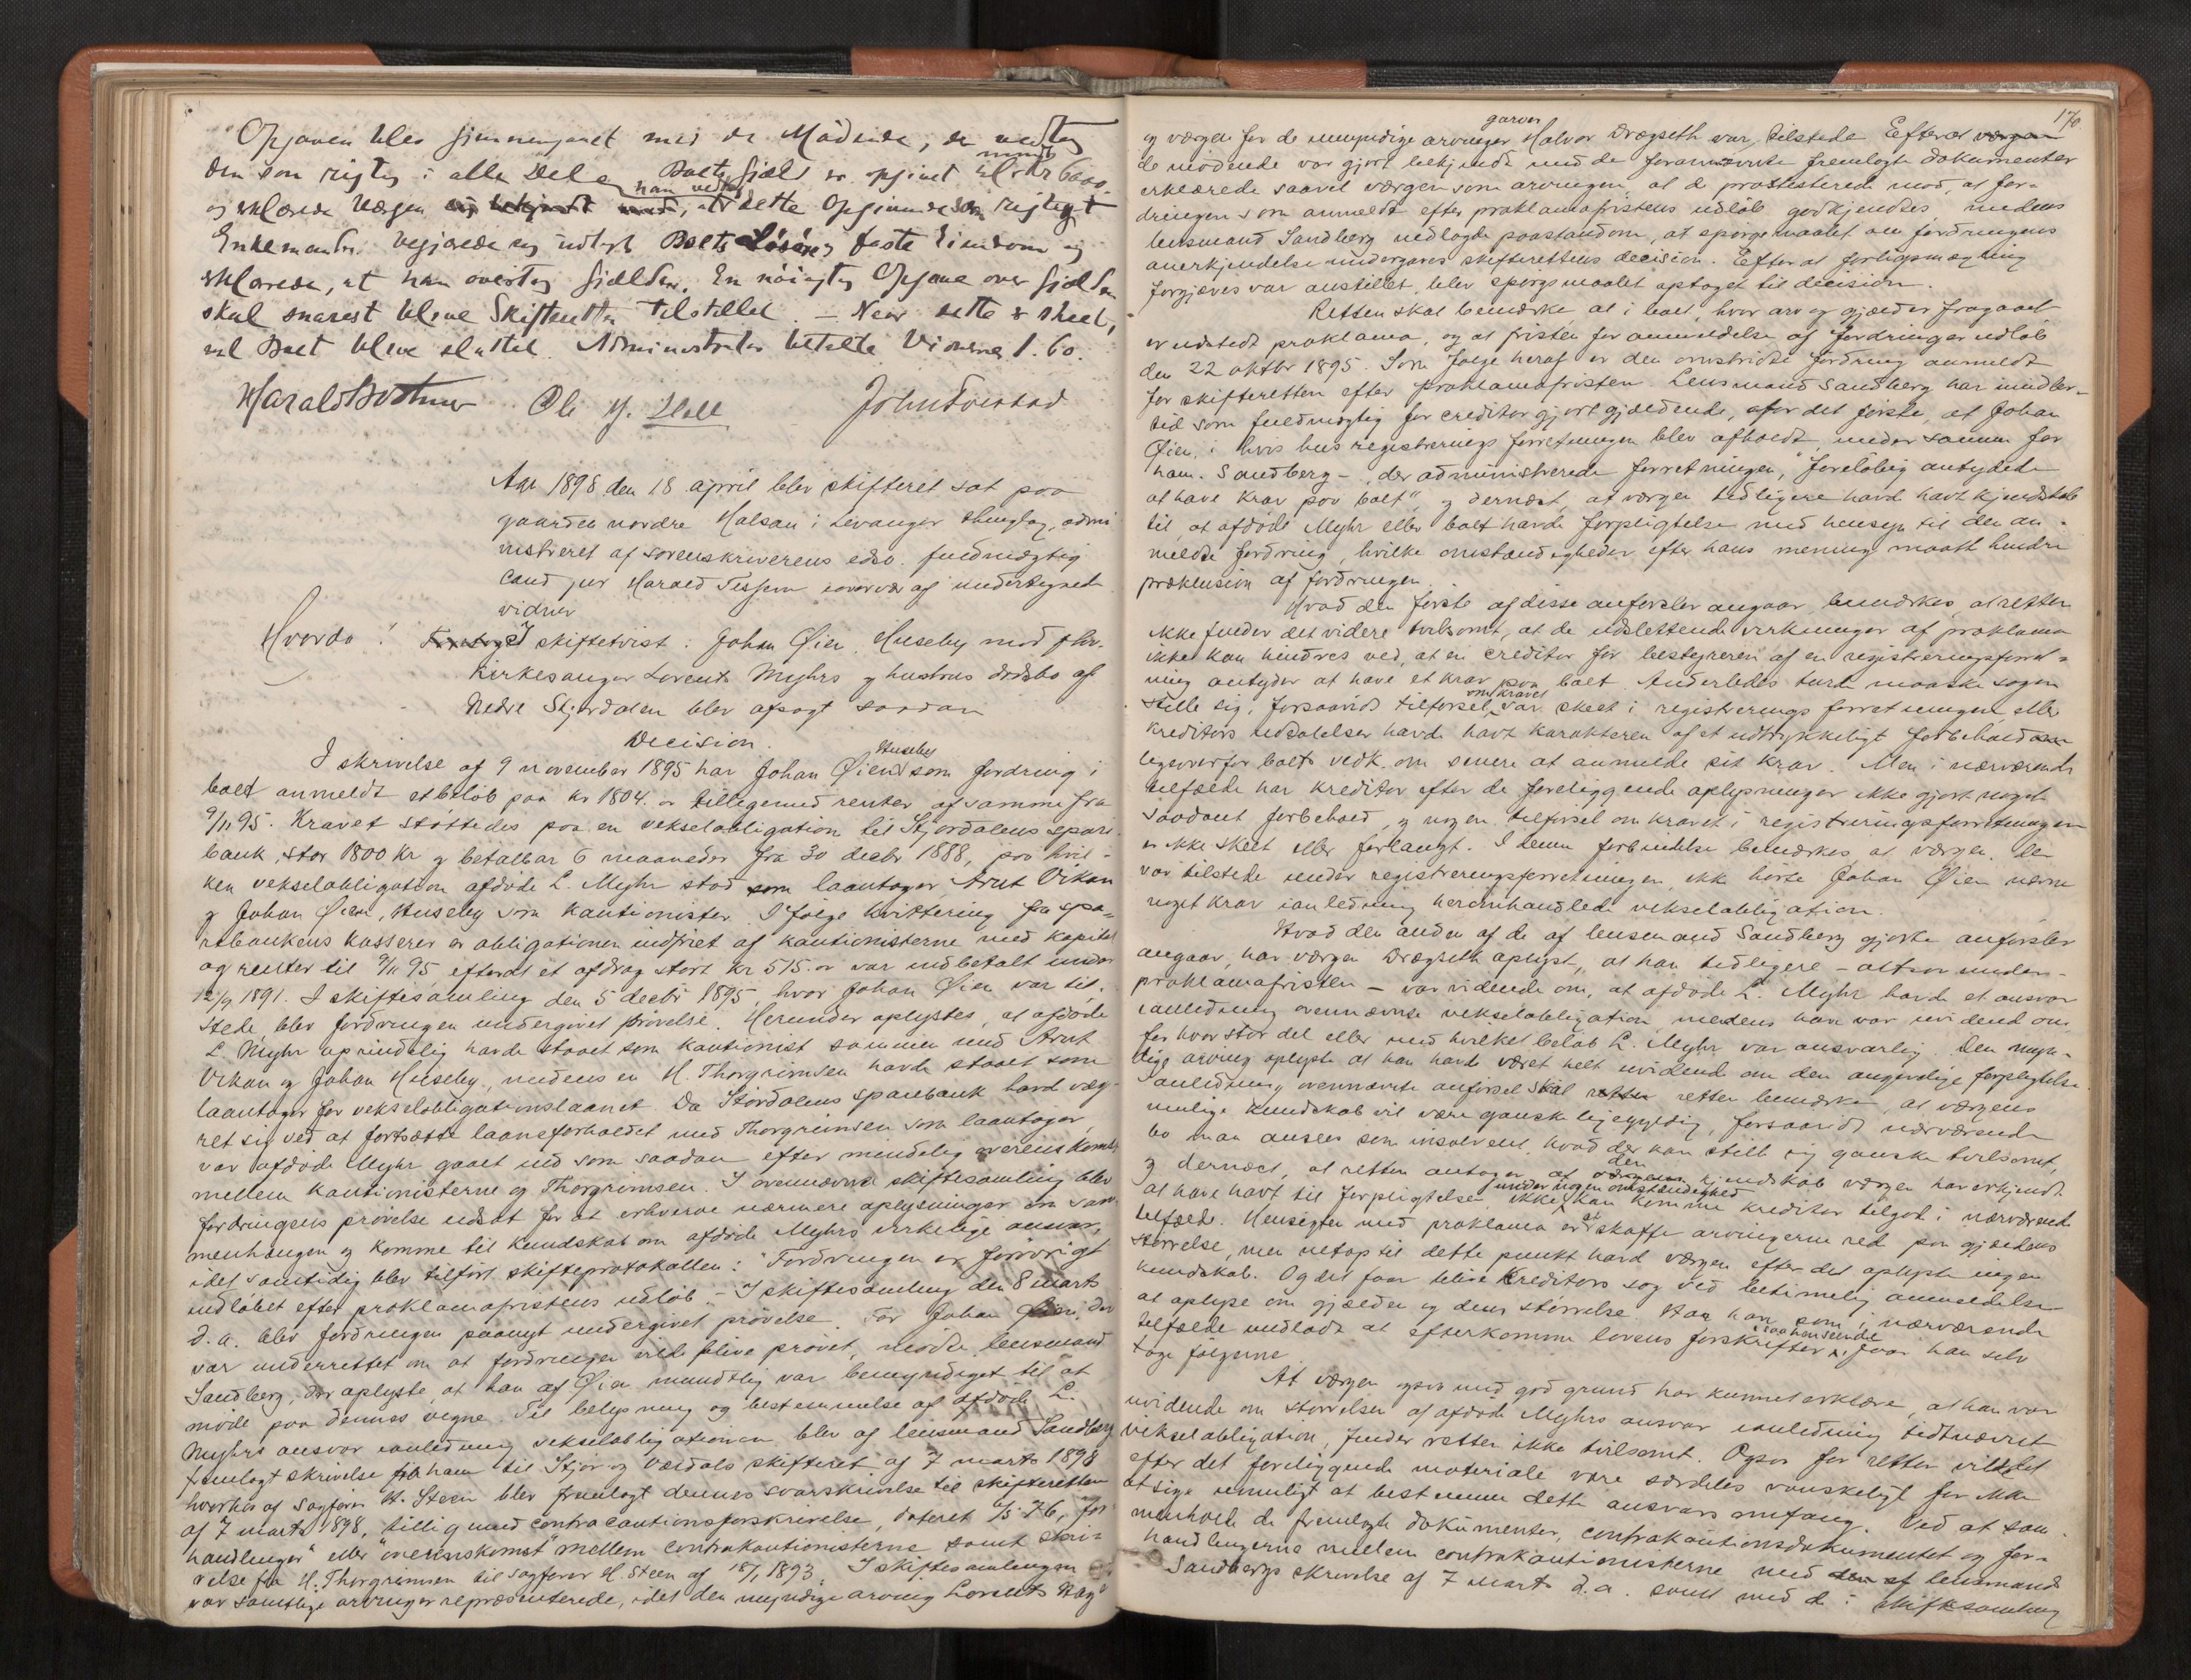 Opgaven blev gjennemgaaet med de Mödende, der vedtog
den som rigtig i alle Dele. Boets Gjæld er opgivet til Kr 6000.
og erklærede Værgen han vedtog, at dette Opgivende som rigtigt
Enkemanden begjærede sig udlagt Boets Lösöre og faste Eiendom og
erklærede, at han overtog Gjælden. En nöiagtig Opgave over Gjælden
skal snarest blive Skifteretten tilstillet. – Naar dette er skeet,
vil Boet blive sluttet. Administrator betalte Vidnerne 1.60.
Harald Bothner Ole M. Holl John Forstad
Aar 1898 den 18 april blev skifteret sat paa
gaarden nordre Halsan i Levanger thinglag, admi
nistreret af sorenskriverens edsv. fuldmægtig
cand jur Harald Tessem i overvær af undertegnede
vidner
Hvorda: Foretoges I skiftetvist: Johan Öien Huseby mod fhv.
kirkesanger Lorents Myhrs og hustrus dödsbo af
Nedre Stjørdalen blev afsagt saadan
Decision.
Huseby
I skrivelse af 9 november 1895 har Johan Öien som fordring i
boet anmeldt et belöb paa kr 1804. or tilligemed renter af samme fra
9/11 95. Kravet støttedes paa en vekselobligation til Stjørdalens spare
bank, stor 1800 kr og betalbar 6 maaneder fra 30 decbr 1888, paa hvil-
ken vekselobligation afdöde L. Myhr stod som laantager, Arnt Vikan
og Johan Öien, Huseby som kautionister. Ifölge kvittering fra spa-
rebankens kasserer er obligationen indfriet af kautionisterne med kapital
og renter til 9/11 95 efterat et afdrag stort kr 515. or var indbetalt under
12/9 1891. I skiftesamling den 5 decbr 1895, hvor Johan Öien var til-
stede, blev fordringen undergivet prövelse. Herunder oplystes, at afdöde
L. Myhr oprindelig havde staaet som kautionist sammen med Arnt
Vikan og Johan Huseby, medens en H. Thorgrimsen havde staaet som
laantager for vekselobligationslaanet. Da Stördalens sparebank havd væg-
ret sig ved at fortsætte laaneforholdet med Thorgrimsen som laantager,
var afdöde Myhr gaaet ind som saadan efter mindelig overenskomst
mellem kautionisterne og Thorgrimsen. I ovennævnte skiftesamling blev
fordringens prövelse udsat for at erhverve nærmere oplysninger om sam-
menhængen og komme til kundskab om afdöde Myhrs virkelige ansvar,
idet samtidig blev tilfört skifteprotokollen: "Fordringen er forövrigt
indlöbet efter proklamafristens udlöb". – I skiftesamling den 8 marts
d.a. blev fordringen paanyt undergivet prövelse. For Johan Öien, der
var underrettet om at fordringen vilde blive prövet, mödte lensmand
Sandberg, der oplyste, at han af Öien mundtlig var bemyndiget til at
möde paa dennes vegne. Til belysning og bestemmelse af afdöde L.
Myhrs ansvar i anledning vekselobligationen blev af lensmand Sandberg
fremlagt skrivelse fra ham til Stjør og Værdals skifteret af 7 marts 1898
hvorhos af sagförer H. Steen blev fremlagt dennes svarskrivelse til skifteretten
af 7 marts 1898, tilligemed contracautionsforskrivelse, dateret 1/5 76, for
handlinger" eller "overenskomst" mellem contrakautionisterne samt skri-
velse fra H. Thorgrimsen til sagförer H. Steen af 18/1 1893. I skiftesamlingen
var samtlige arvinger repræsenterede, idet den myndige arving Lorents Hag
170
garver
og værgen for de umyndige arvinger Halvor Drægseth var tilstede. Efterat
de mödende var gjort bekjendt med de forannævnte fremlagte dokumenter
erklærede saavel værgen som arvingen, at de protesterede mod, at for-
dringen som anmeldt efter proklamafristens udlöb godkjendtes, medens
lensmand Sandberg nedlagde paastand om, at spörgsmaalet om fordringens
anerkjendelse undergaves skifterettens decision. Efterat forligsmægling
forgjæves var anstillet, blev spörgsmaalet optaget til decision.
Retten skal bemærke at i boet, hvor arv og gjæld er fragaaet
er udstedt proklama, og at fristen for anmeldelse af fordringer udlöb
den 22 oktbr 1895. Som fölge heraf er den omtvistede fordring anmeldt
for skifteretten efter proklamafristen. Lensmand Sandberg har imidler-
tid som fuldmægtig for creditor gjort gjældende, for det förste, at Johan
Öien, i hvis hus registreringsforretningen blev afholdt, under samme for
ham. Sandberg – der administrerede forretningen, "forelöbig antydede
at have krav paa boet", og dernæst, at værgen tidligere havde havt kjendskab
til, at afdöde Myhr eller boet havde forpligtelse med hensyn til den an-
meldte fordring, hvilke omstændigheder efter hans mening maatte hindre
præklusion af fordringen.
Hvad den förste af disse anförsler angaar, bemærkes, at retten
ikke finder det videre tvilsomt, at de udslettende virkninger af proklama
ikke kan hindres ved, at en creditor for bestyreren af en registreringsforret-
ning antyder at have et krav paa boet. Anderledes turde maaske sagen
stille sig, forsaavidt tilförsel om kravet var skeet i registreringsforretningen eller
kreditors udtalelser havde havt karakteren af et udtrykkeligt forbehold
ligeoverfor boets vedk. om senere at anmelde sit krav. Men i nærværende
tilfælde har kreditor efter de foreliggende oplysninger ikke gjort noget
saadant forbehold, og nogen tilförsel om kravet i registreringsforretningen
er ikke skeet eller forlangt. I denne forbindelse bemærkes at værgen, der
var tilstede under registreringsforretningen, ikke hörte Johan Öien nævne
noget krav i anledning heromhandlede vekselobligation.
Hvad den anden af de af lensmand Sandberg gjorte anförsler
angaar, har værgen Drægseth oplyst, at han tidligere – altsaa inden-
proklamafristen – var vidende om, at afdöde L. Myhr havde et ansvar
i anledning ovennævnte vekselobligation, medens han var uvidende om,
for hvor stor del eller med hvilket belöb L. Myhr var ansvarlig. Den myn-
dige arving oplyste at han havde været helt uvidende om den angjeldige forpligtelse.
I anledning ovennævnte anförsel skal retten bemærke, at værgens
mulige kundskab vil være ganske ligegyldig, forsaavidt nærværende
bo maa ansees som insolvent, hvad der kan stille sig ganske tvilsomt,
og dernæst, at retten antager at den kjendskab værgen har erkjendt
at have havt til forpligtelsen ikke under nogen omstændighed kan komme kreditor tilgod i nærværende
tilfælde. Hensigten med proklama er at skaffe arvingerne rede paa gjældens
störrelse, men netop til dette punkt havd værgen efter det oplyste ingen
kundskab. Og det faar blive kreditors sag ved betimelig anmeldelse
at oplyse om gjælden og dens störrelse. Har han som i nærværende
tilfælde undladt at efterkomme lovens forskrifter i saa henseende, faar han selv
tage fölgerne.
At værgen ogsaa med god grund har kunnet erklære, at han var
uvidende om störrelsen af afdöde Myhrs ansvar i anledning tidtnævnte
vekselobligation, finder retten ikke tvilsomt. Ogsaa for retten vilde det
efter det foreliggende materiale være særdeles vanskeligt for ikke
at sige umuligt at bestemme dette ansvars omfang. Ved at sam-
menholde de fremlagte dokumenter, contrakautionsdokumentet og for-
handlingerne mellem contrakautionisterne med lensmand
Sandbergs skrivelse af 7 marts d.a. samt med de i skiftesamling